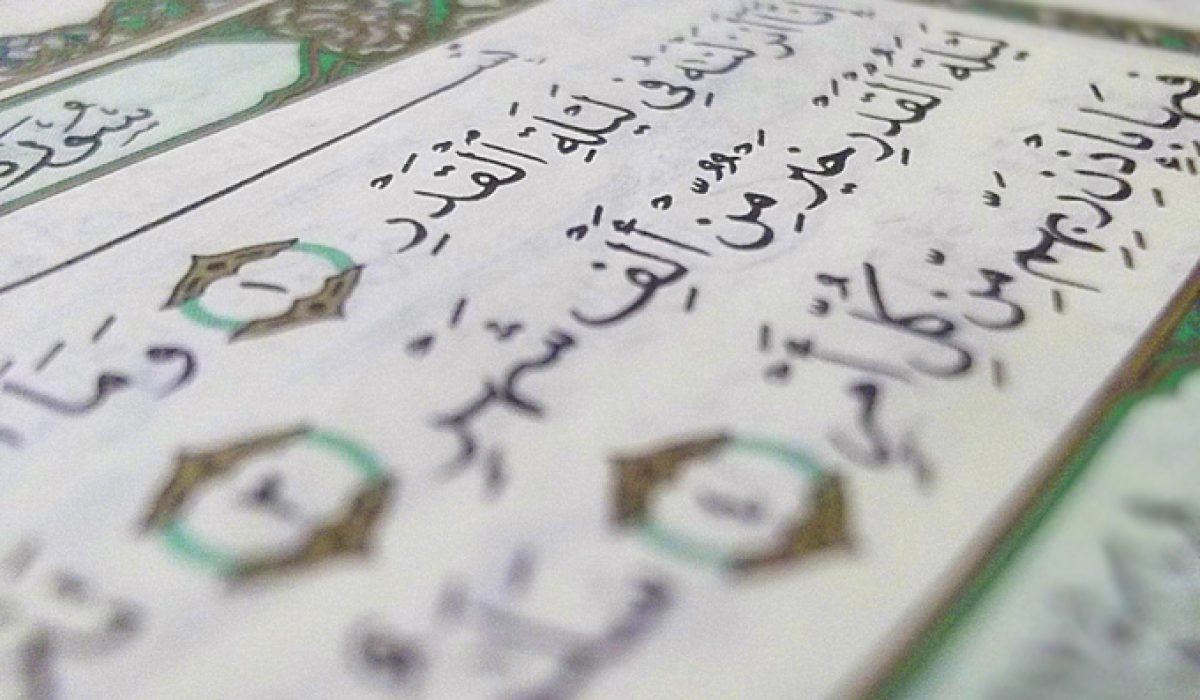 سُورَة
إِنَّا أَنزَلْنَٰهُ فِي لَيْلَةِ ٱلْقَدْرِ ١ وَمَا
لَيْلَةُ ٱلْقَدْرِ خَيْرٌ مِّنْ أَلْفِ شَهْرٍ ٣
فِيهَا بِإِذْنِ رَبِّهِم مِّن كُلِّ أَمْرٍ ٤ سَلَٰمٌ